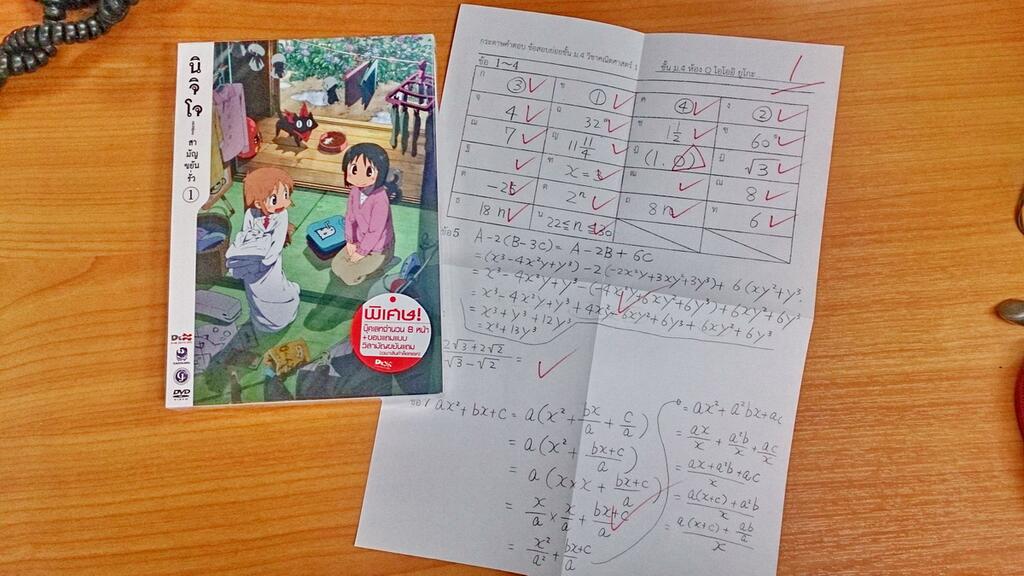 นิจิโจ
สามัญขยันรั่ว
1
พิเศษ!
บุ๊คเลทจำนวน 8 หน้า
+ของแถมแบบ
DVD
กระดาษคำตอบ ข้อสอบย่อยชั้น ม.4 วิชาคณิตศาสตร์ 1
ชั้น ม.4 ห้อง Q ไอโออิ ยูโกะ
1
ข้อ 1~4
ก ③ ข ① ค ④ ง ②
จ 4 ฉ 32° ช 1 1/2 ซ 60°
ฌ 7 ญ 11 11/4 ฎ (1.0) ฏ √3
ฐ ฑ x = ฒ ณ 8
ด -25 ต 2ⁿ ถ 8n ท 6
ธ 18n น 22≤n≤30
ข้อ5 A-2(B-3C) = A-2B+6C
= (x³-4x²y+y³)-2(-2x²y+3xy²+3y³)+6(xy²+y³
= x³-4x²y+y³-(-4x²y+6xy²+6y³)+6xy²+6y³
= x³-4x²y+y³+4x²y-6xy²+6y³+6xy²+6y³
= x³+y³+12y³
= x³+13y³
2√3+2√2 / √3-√2 =
ข้อ7 ax²+bx+c = a(x²+bx/a+c/a)
= a(x²+bx+c/a)
= a(x×x+bx+c/a)
= x/a×x/a+bx+c/a
= x²/a²+bx+c/a
= ax²+a²bx+ac
= ax/x+a²b/x+ac/x
= ax+a²b+ac/x
= a(x+c)+a²b/x
= a(x+c)+ab/a/x